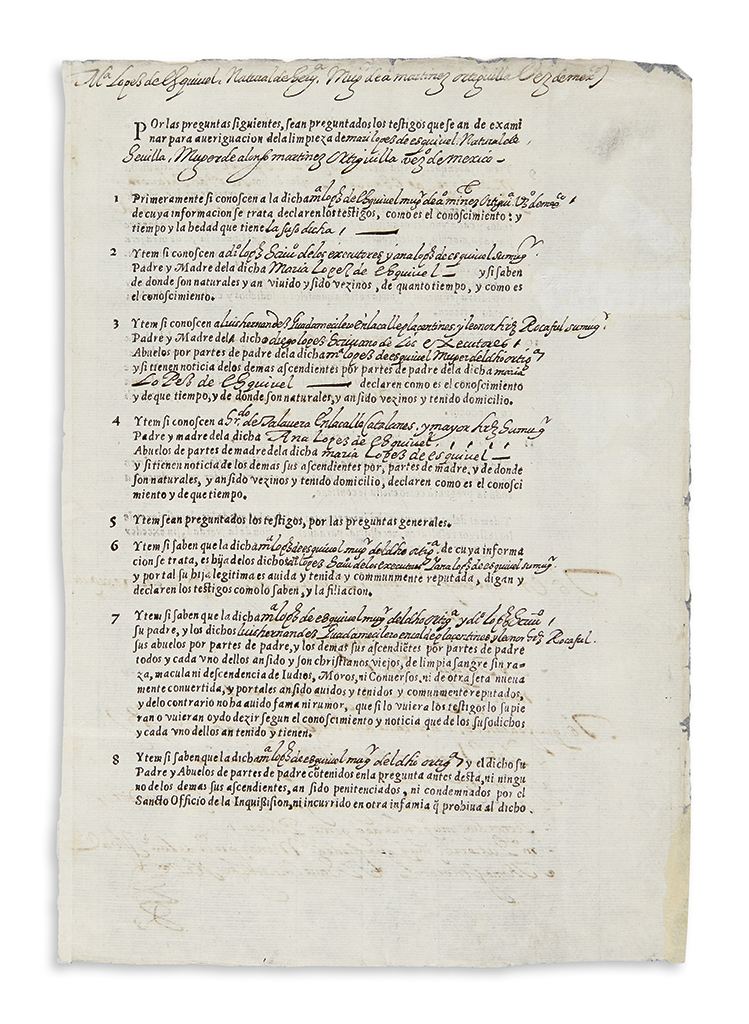 Mª Lopez de esquivel. Natural de Sevª. Mugr de aº martinez ortiguilla Vezº de mexcº
POr las preguntas siguientes, sean preguntados los testigos que se an de exami
nar para aueriguacion dela limpieza de maria lopez de esquivel. Natural de
Sevilla, Muger de alonso martinez Ortiguilla vezº de Mexico
1 Primeramente si conoscen a la dicha mª lopz de esquivel mugr de aº mrnez ortigª vzº de mexcº
de cuya informacion se trata declaren los testigos, como es el conoscimiento: y
tiempo y la hedad que tiene la suso dicha
2 Ytem si conoscen a dº lopz Scriuº de los executores y ana lopz de esquivel su mugr
Padre y Madre dela dicha Maria Lopez de esquivel y si saben
de donde son naturales y an viuido y sido vezinos, de quanto tiempo, y como es
el conoscimiento.
3 Ytem si conoscen a luis hernandez Guadamecilero en la calle placentines. y leonor hrz Rocaful su mugr
Padre y Madre del dicho diego lopez Escriuano de Los eXecutores
Abuelos por partes de padre dela dicha mª lopz de esquivel Muger del dho ortigª
y si tienen noticia delos demas ascendientes por partes de padre dela dicha maria
Lopez de esquivel declaren como es el conoscimiento
y de que tiempo, y de donde son naturales, y an sido vezinos y tenido domicilio.
4 Ytem si conoscen a Grdo de Talauera en la calle Catalanes. y mayor hrz su mugr
Padre y madre dela dicha Ana Lopez de esquivel
Abuelos de partes de madre dela dicha maria Lopez de esquivel
y si tienen noticia de los demas sus ascendientes por, partes de madre, y de donde
son naturales, y an sido vezinos y tenido domicilio, declaren como es el conosci
miento y de que tiempo.
5 Ytem sean preguntados los testigos, por las preguntas generales.
6 Ytem si saben que la dicha mª lopz de esquivel mugr del dho ortigª. de cuya informa
cion se trata, es hija delos dichos dº lopez Scriuº de los executores y ana lopz de esquivel su mugr
y por tal su hija legitima es auida y tenida y communmente reputada, digan y
declaren los testigos como lo saben, y la filiacion.
7 Ytem si saben que la dicha mª lopz de esquivel mugr del dho ortigª y dº lopz Scriuº
su padre, y los dichos luis hernandez Guadamecilero en cal de placentines y leonor hrz Rocaful.
sus abuelos por partes de padre, y los demas sus ascendiẽtes por partes de padre
todos y cada vno dellos an sido y son christianos viejos, de limpia sangre sin ra-
za, macula ni descendencia de Iudios, Moros, ni Conuersos, ni de otra seta nueua
mente conuertida, y por tales an sido auidos y tenidos y comunmente reputados,
y delo contrario no ha auido fama ni rumor, que si lo vuiera los testigos lo supie
ran o vuieran oydo dezir segun el conoscimiento y noticia que de los susodichos
y cada vno dellos an tenido y tienen.
8 Ytem si saben que la dicha mª lopz de esquivel mugr del dho ortigª y el dicho su
Padre y Abuelos de partes de padre cõtenidos en la pregunta antes desta, ni ningu
no delos demas sus ascendientes, an sido penitenciados, ni condemnados por el
Sancto Officio de la Inquisision, ni incurrido en otra infamia q̃ prohiua al dicho.